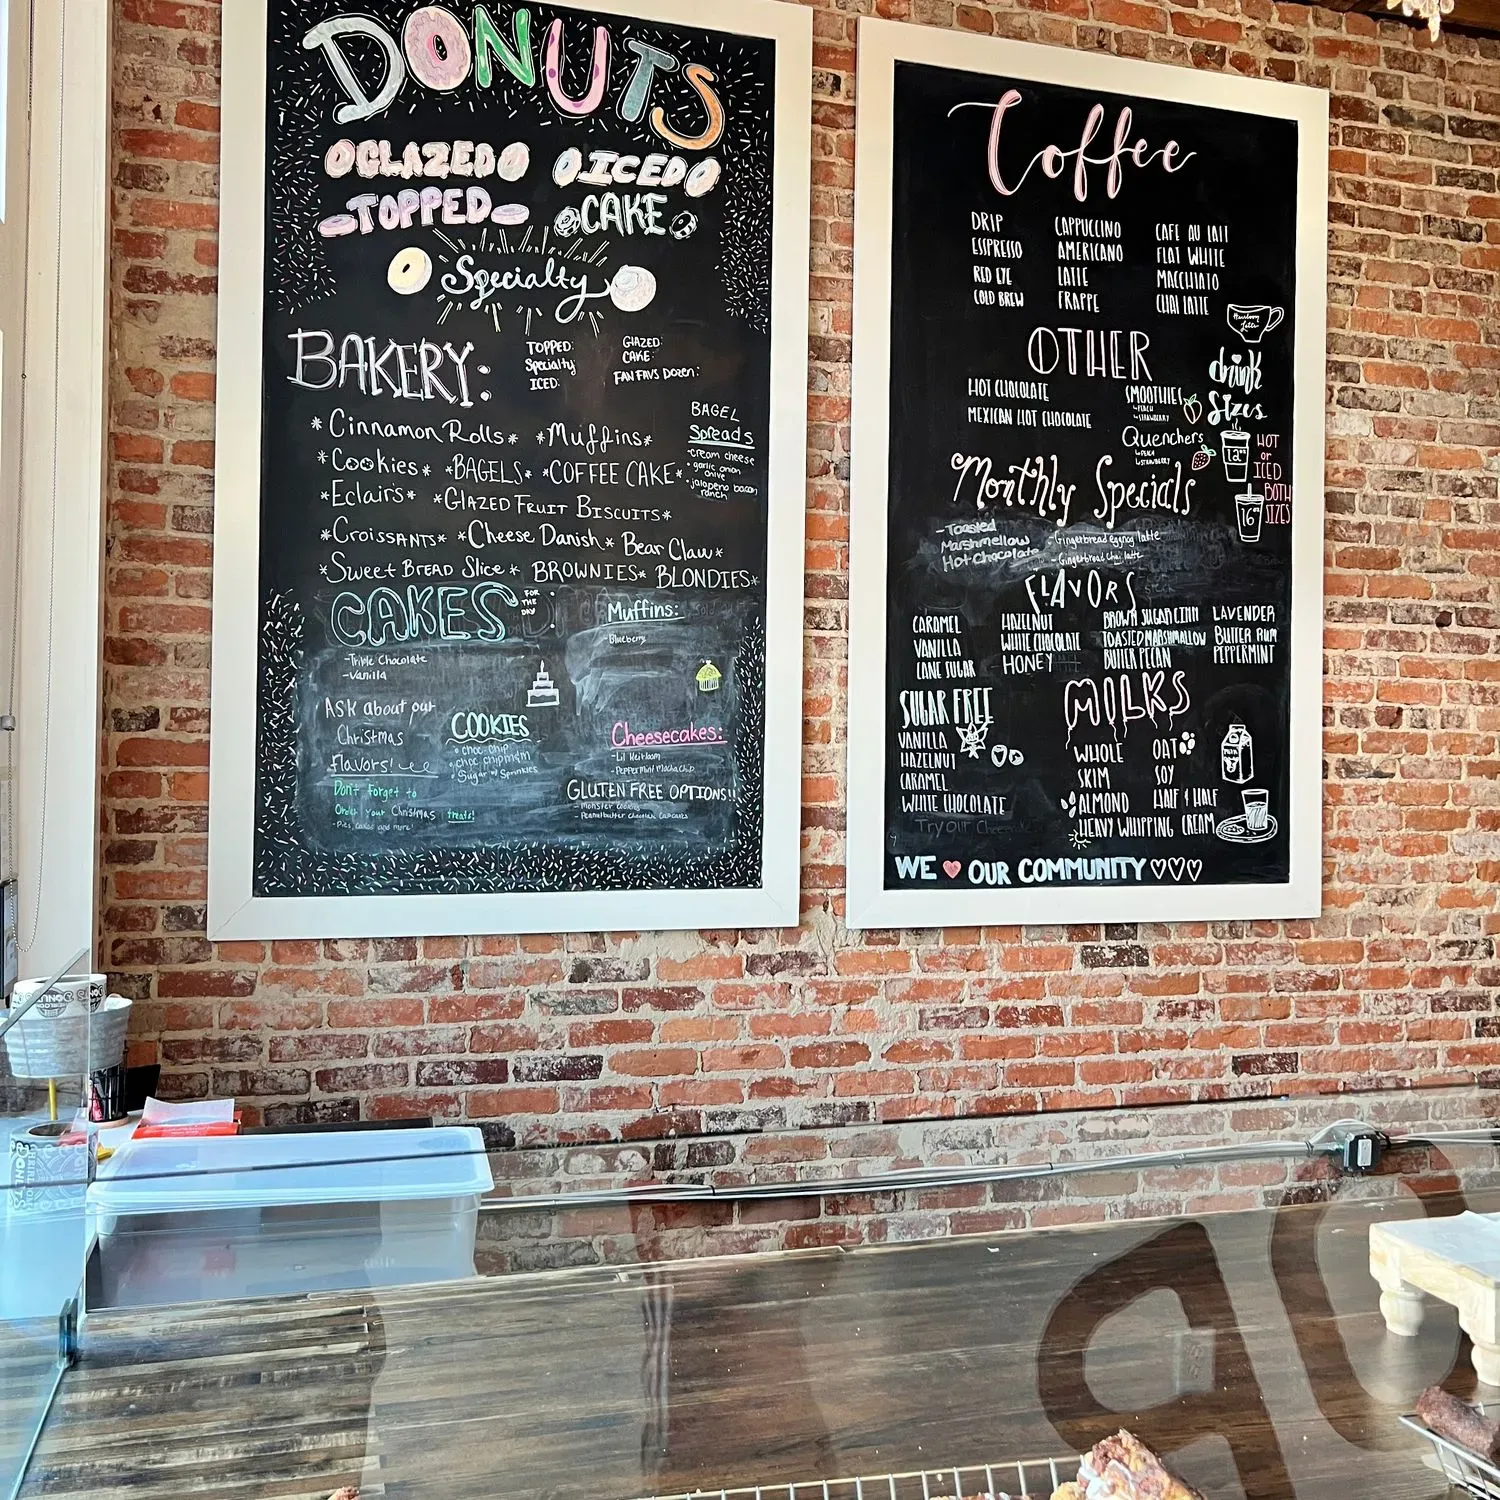 DONUTS
GLAZED ICED
TOPPED CAKE
Specialty
BAKERY:
TOPPED: GLAZED:
Specialty: CAKE:
ICED: FAN FAVS DOZEN:
*Cinnamon Rolls* *Muffins*
*Cookies* *BAGELS* *COFFEE CAKE*
*Eclairs* *GLAZED FRUIT BISCUITS*
*CROISSANTS* *Cheese Danish* Bear Claw*
*Sweet BREAD Slice* BROWNIES* BLONDIES*
BAGEL
Spreads
cream cheese
garlic onion
chive
jalapeno bacon
ranch
CAKES FOR THE DAY:
-Triple Chocolate
-Vanilla
Muffins:
-Blueberry
ASK about our
Christmas
flavors!
Don't forget to
Order your Christmas treats!
-Pies, Cakes and more!
COOKIES
choc chip
choc chip m&m
Sugar w/ Sprinkles
Cheesecakes:
-Lil Heirloom
-Peppermint Mocha chip
GLUTEN FREE OPTIONS!!
-Monster Cookies
-Peanutbutter Chocolate Cupcakes
Coffee
DRIP CAPPUCCINO CAFE AU LAIT
ESPRESSO AMERICANO FLAT WHITE
RED EYE LATTE MACCHIATO
COLD BREW FRAPPE CHAI LATTE
OTHER
HOT CHOCOLATE
MEXICAN HOT CHOCOLATE
SMOOTHIES
PEACH
STRAWBERRY
Quenchers
PEACH
STRAWBERRY
drink
Sizes
12oz
16oz
HOT
or
ICED
BOTH
SIZES
Monthly Specials
-Toasted
Marshmellow
Hot Chocolate
-Gingerbread eggnog latte
-Gingerbread Chai latte
FLAVORS
CARAMEL HAZELNUT BROWN SUGAR CINN LAVENDER
VANILLA WHITE CHOCOLATE TOASTED MARSHMALLOW BUTTER RUM
CANE SUGAR HONEY BUTTER PECAN PEPPERMINT
SUGAR FREE
VANILLA
HAZELNUT
CARAMEL
WHITE CHOCOLATE
MILKS
WHOLE OAT
SKIM SOY
ALMOND HALF & HALF
HEAVY WHIPPING CREAM
MILK
WE OUR COMMUNITY